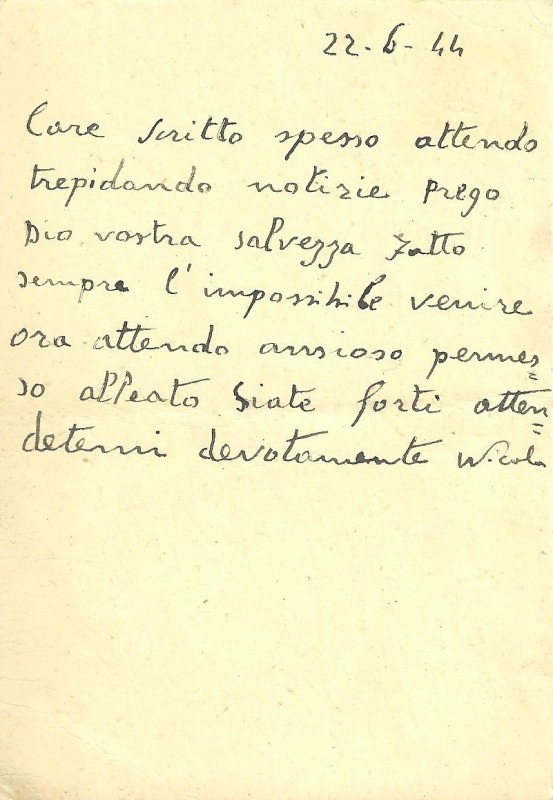 22-6-44
Care scritto spesso attendo
trepidando notizie prego
Dio vostra salvezza Fatto
sempre l'impossibile venire
ora attendo ansioso permes=
so alleato Siate forti atten=
detemi devotamente Nicola